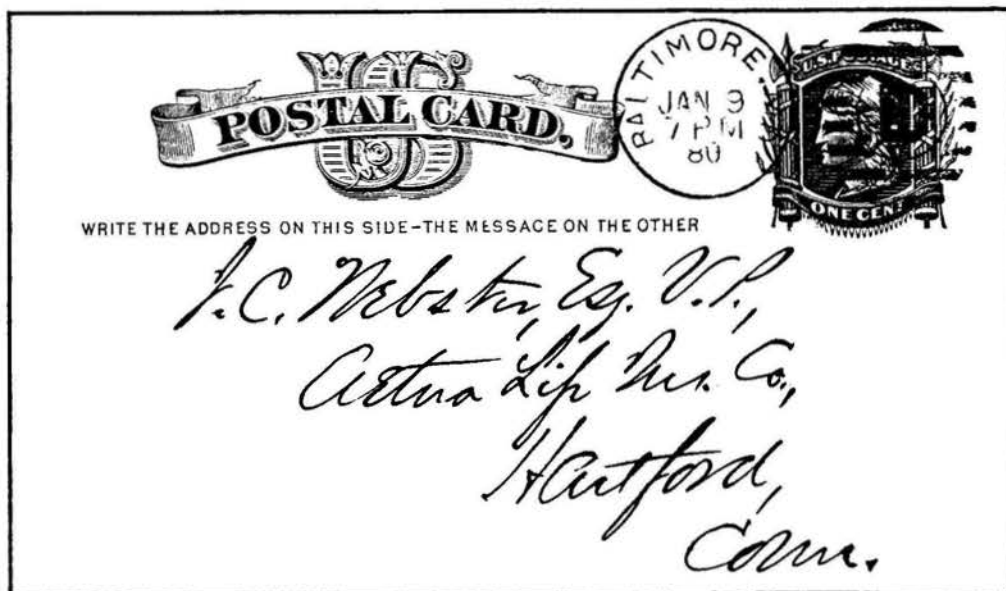 US
POSTAL CARD.
BALTIMORE.
JAN 9
7 PM
80
U.S. POSTAGE
ONE CENT
WRITE THE ADDRESS ON THIS SIDE-THE MESSAGE ON THE OTHER
J. C. Webster, Esq. V.P.,
Aetna Life Ins. Co.,
Hartford,
Conn.